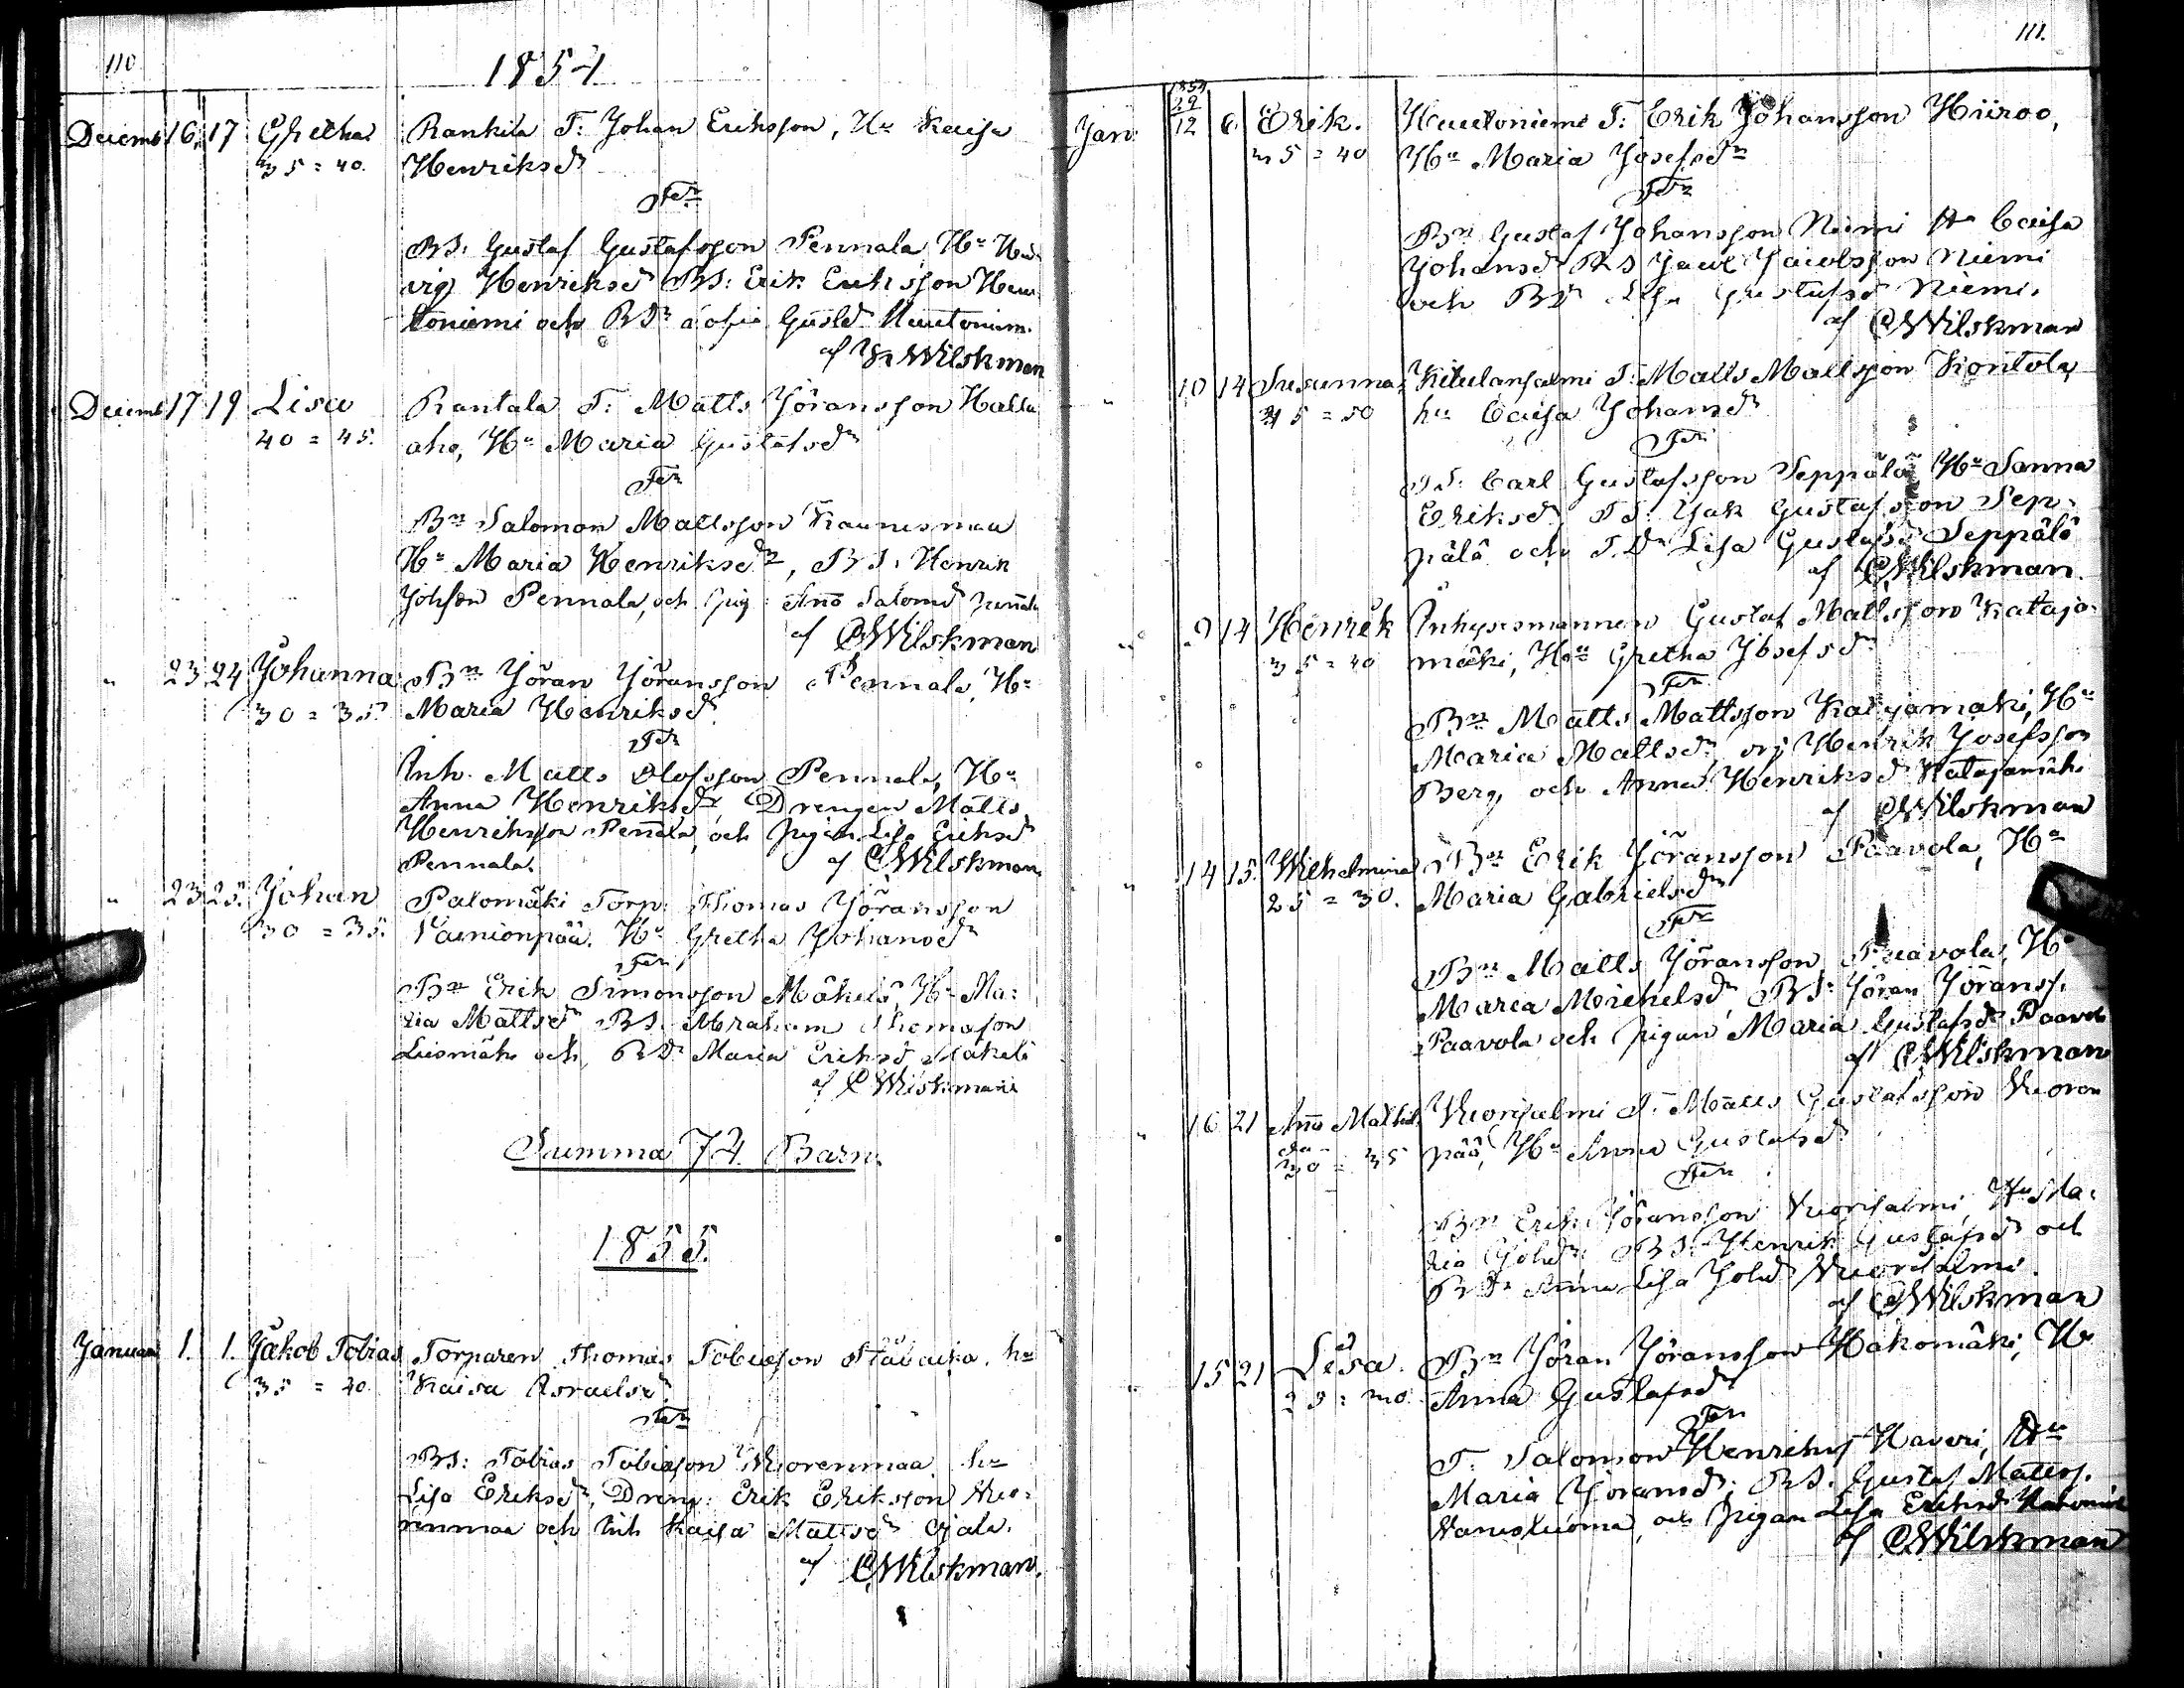 110
1854
Decemb 16 17 Gretha Rankila T: Johan Eriksson, Hu Kaisa
35 = 40. Henriksdr
Fadr
BS: Gustaf Gustafsson Pennala Hu Hed
vig Henriksdr BS: Erik Eriksson Heu
toniemi och BDr Gustd Heutoniem.
af CWilskman
Decemb 17 19 Lisa Rantala T: Matts Jöransson Halla
40 = 45. aho, Hu Maria Gustafsdr
Fadr
Bn Salomon Mattsson Kaunismaa
Hu Maria Henriksdr, BS: Henrik
Johsson Pennala, och pig: Aña Salomd Peñala
af CWilskman
" 23 24 Johanna Bn Jöran Jöransson Pennala, Hu
30 = 35. Maria Henriksdr
Fadr
Inh. Matts Olofsson Pennala, Hu
Anna Henriksdr, Drengen Matts
Henriksson Peñala, och pigan Lisa Eriksdr
Pennala. af CWilskman
" 23 25. Johan Palomäki Torp: Thomas Jöransson
30 = 35. Vainionpää. Hu Gretha Johansdr
Fadr
Bn Erik Simonsson Mäkelä, Hu Ma:
ria Mattsdr BS: Abraham Thomasson
och BDr Maria Eriksd Mäkelä
af CWilskman
Summa 74 Barn.
1855.
Januari 1. 1. Jakob Tobias Torparen Thomas Tobiasson hu
35 = 40. Kaisa Israelsdr
Fadr
BS: Tobias Tobiasson Vuorenmaa hu
Lisa Eriksdr, Dreng: Erik Eriksson Vuo:
renmaa och Inh Kaisa Mattsdr Ojala.
af CWilskman.
111.
1854
29
Jan: 12 6. Erik. Heutoniemi T: Erik Johansson Hiiroo,
35 = 40 Hu Maria Josefsdr
Fadr
Bn Gustaf Johansson Niemi Hu Caisa
Johansdr BS Jacob Jacobsson Niemi
och BDr Lisa Gustafsd Niemi.
af CWilskman
" 10 14 Susanna Kitulansalmi T: Matts Mattsson Kontola,
45 = 50 hu Caisa Johansdr
Fadr
TS: Carl Gustafsson Seppälä Hu Sanna
Eriksdr TS: Jak Gustafsson Sep:
pälä och T.Dr Lisa Gustafsd Seppälä
af CWilskman.
" 9 14 Henrik Inhysesmannen Gustaf Mattsson Kataja:
35 = 40 mäki, Hu Gretha Josefsdr
Fadr
Bn Matts Mattsson Katajamäki, Hu
Maria Mattsdr, Henrik Josefsson
Berg, och Anna Henriksd Katajamäki
af CWilskman
" 14 15. Wilhelmina Bn Erik Jöransson Paavola, Hu
25 = 30. Maria Gabrielsdr
Fadr
Bn Matts Jöransson Paavola, Hu
Maria Michelsdr, BS: Jöran Jöranss.
Paavola och pigan Maria Gustafsdr Paavola
af CWilskman
" 16 21 Aña Mathil Vuorisalmi T: Matts Gustafsson Vuoren
da
30 = 35 pää, Hu Anna Gustafsdr
Fadr
Bn Erik Jöransson Vuorisalmi, Hu Ma:
ria Johdr BS: Henrik Gustafsd och
BDr Anna Lisa Johd Vuorisalmi.
af CWilskman
" 15 21 Lisa. Bn Jöran Jöransson Hakomäki, Hu
25 = 30 Anna Gustafsdr
Fadr
T. Salomon Henrikss Haveri, Hu
Maria Joransdr, BS. Gustaf Mattss.
och pigan Lisa Eriksd Hakomäki
af CWilskman